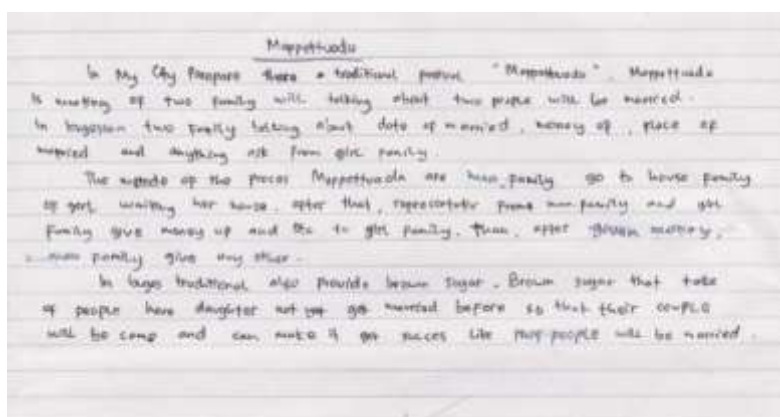 Mappettuada
In My City Parepare there a traditional "Mappettuada". Mappettuada
Is meeting of two family will talking about two people will be married.
In two family talking about date of married, money of, place of
married and anything ask from girl family.
The of the proces Mappettuada are man family go to house family
of girl waiting her house. after that, from man family and girl
family give money up and etc to girl family. than, after given money,
man family give any other.
In bugis traditional also provide brown sugar. Brown sugar that take
of people have daughter not get married before so that their couple
will be come and can make it get succes like people will be married.